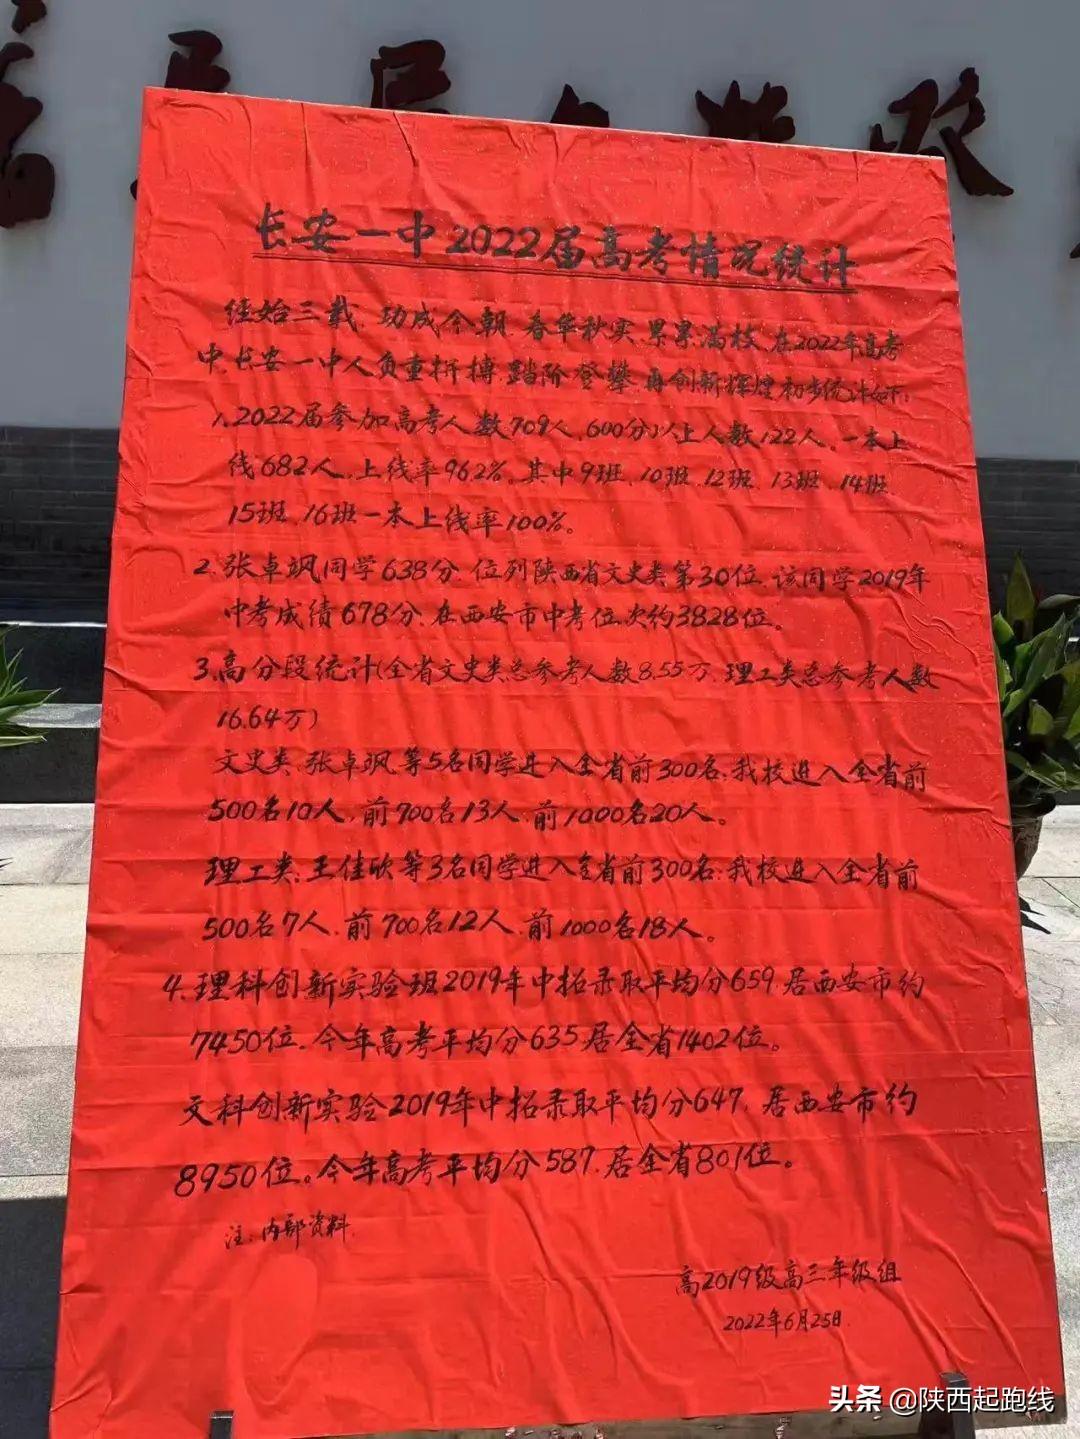 长安一中2022届高考情况统计
经始三载,功成今朝,春华秋实,累累满枝,在2022年高考
中,长安一中人负重拼搏,踏阶登攀,再创新辉煌,初步统计如下:
1.2022届参加高考人数709人,600分以上人数122人,一本上
线682人,上线率96.2%。其中9班、10班、12班、13班、14班、
15班、16班一本上线率100%。
2.张卓飒同学638分,位列陕西省文史类第30位,该同学2019年
中考成绩678分,在西安市中考位次约3828位。
3.高分段统计(全省文史类总参考人数8.55万,理工类总参考人数
16.64万)
文史类:张卓飒等5名同学进入全省前300名;我校进入全省前
500名10人,前700名13人,前1000名20人。
理工类:王佳欣等3名同学进入全省前300名;我校进入全省前
500名7人,前700名12人,前1000名18人。
4.理科创新实验班2019年中招录取平均分659,居西安市约
7450位,今年高考平均分635,居全省1402位。
文科创新实验2019年中招录取平均分647,居西安市约
8950位。今年高考平均分587,居全省801位。
注:内部资料
高2019级高三年级组
2022年6月25日
头条 @陕西起跑线